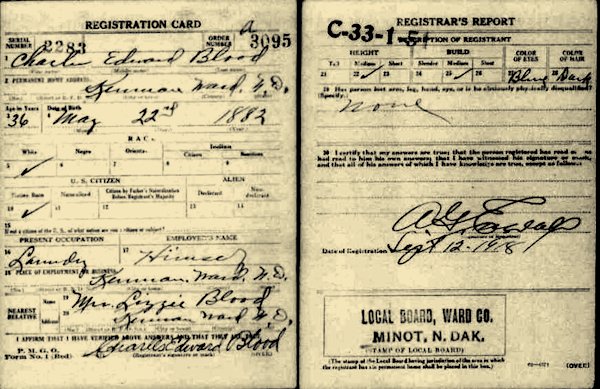 REGISTRATION CARD
SERIAL NUMBER 2283 ORDER NUMBER a 3095
Charles Edward Blood
2 PERMANENT HOME ADDRESS:
Kenmare, Ward, N.D.
Age in Years Date of Birth
36 May 22nd 1882
RACE
White Negro Oriental Indian
Citizen Noncitizen
5 6 7 8 9
U. S. CITIZEN ALIEN
Native Born Naturalized Citizen by Father's Naturalization Before Registrant's Majority Declarant Non-declarant
10 11 12 13 14
15
If not a citizen of the U. S., of what nation are you a citizen or subject?
PRESENT OCCUPATION EMPLOYER'S NAME
16 Laundry 17 Himself
18 PLACE OF EMPLOYMENT OR BUSINESS:
Kenmare, Ward, N.D.
NEAREST RELATIVE Name 19 Mrs. Lizzie Blood
Address 20 Kenmare Ward N.D.
I AFFIRM THAT I HAVE VERIFIED ABOVE ANSWERS AND THAT THEY ARE TRUE
P. M. G. O.
Form No. 1 (Red) Charles Edward Blood
(Registrant's signature or mark) (OVER)
REGISTRAR'S REPORT
C-33-1-5
DESCRIPTION OF REGISTRANT
HEIGHT BUILD COLOR OF EYES COLOR OF HAIR
Tall Medium Short Slender Medium Stout
21 22 23 24 25 26 27 Blue 28 Dark
29 Has person lost arm, leg, hand, eye, or is he obviously physically disqualified?
(Specify.)
None
30 I certify that my answers are true; that the person registered has read or has
had read to him his own answers; that I have witnessed his signature or mark,
and that all of his answers of which I have knowledge are true, except as follows:
Date of Registration Sept 12-1918
LOCAL BOARD, WARD CO.
MINOT, N. DAK.
(STAMP OF LOCAL BOARD)
(The stamp of the Local Board having jurisdiction of the area in which
the registrant has his permanent home shall be placed in this box.)
(OVER)